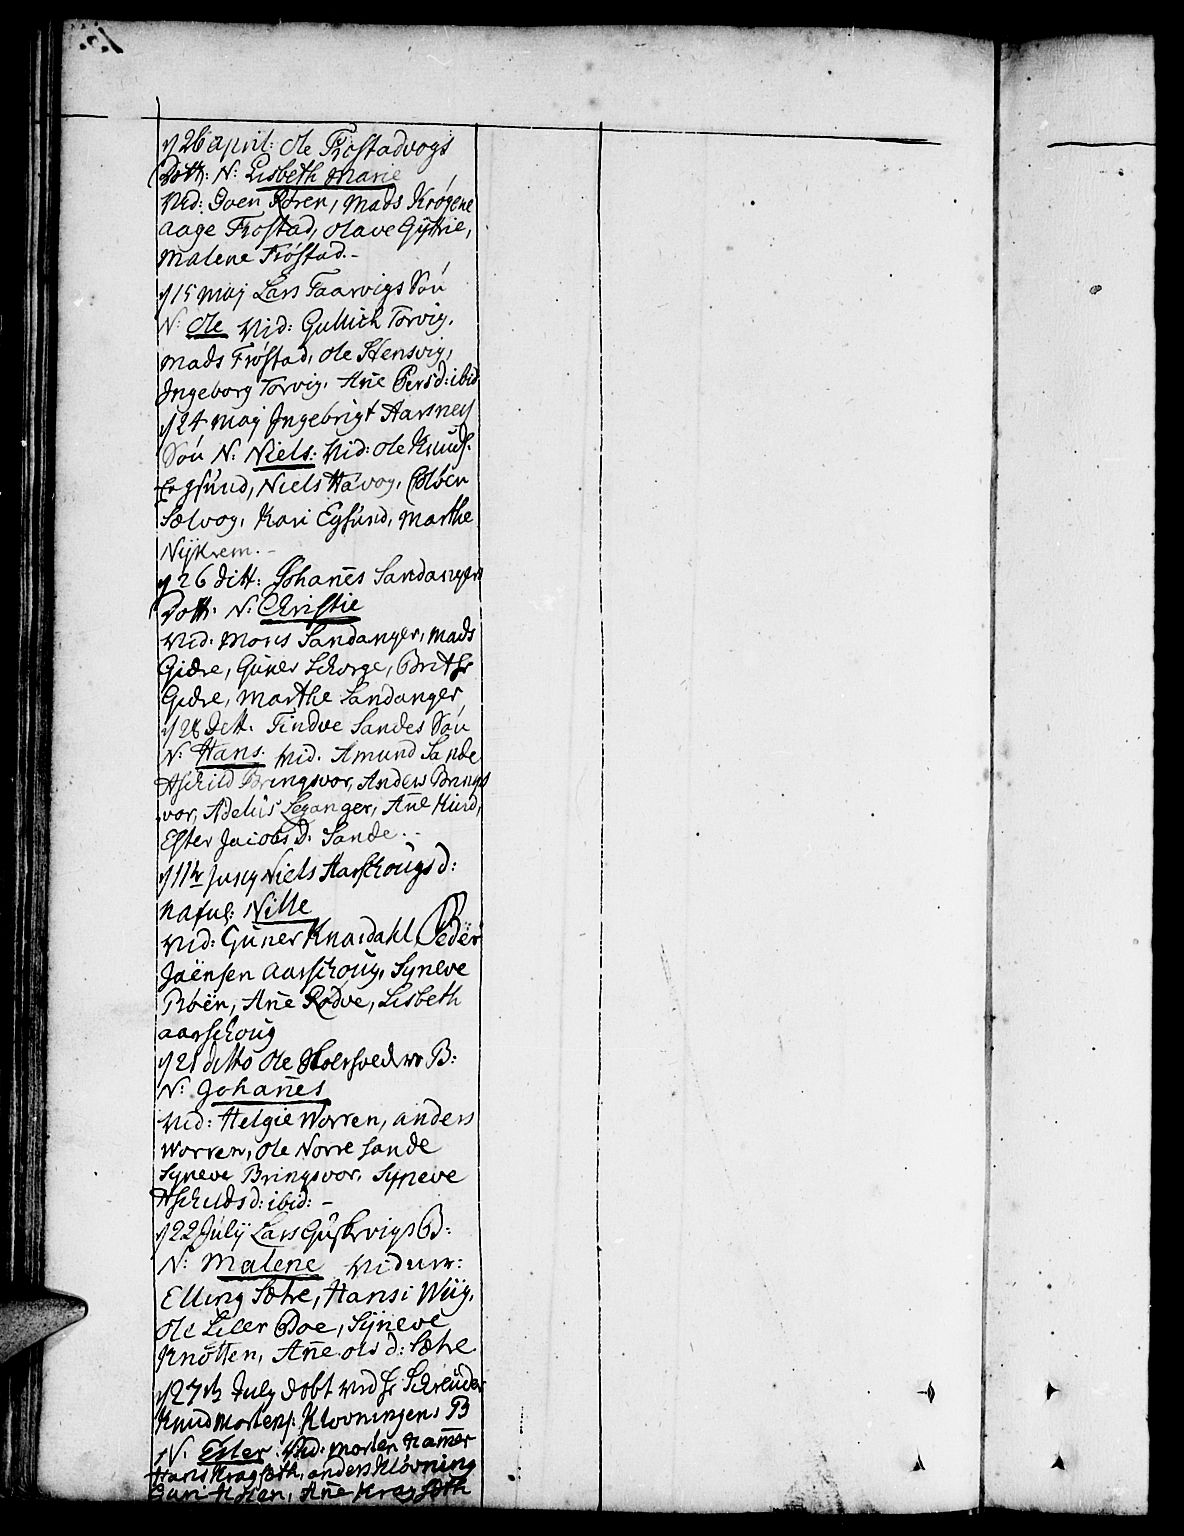 26 april: Ole Frostadvogs
Dott: N: Lisbeth Marie
Vid: Sven Røren, Mads Krøgene
Aage Frostad, Olave Gythrie,
Malene Frøstad.-
15 Maj Lars Taarvigs Søn
N: Ole Vid: Gullich Torvig.
Mads Frøstad, Ole Stensvig,
Jngeborg Torvig. Añe Persd: ibid
24 Maj Jngebrigt Aarsnes
Søn N: Niels: Vid: Ole Knuds.
Egsund, Niels Havog,
Sælvog, Kari Egsund, Marthe
Nykrem.-
26 ditt: Johañes Sandanger
Dott: N: Christie
Vid: Mons Sandanger, Mads
Giære, Guner Schorge, Brithe
Giære, Marthe Sandanger,
28 ditt. Tindve Sandes Søn
N: Hans. Vid. Amund Sande
Aschild Bringsvor, Anders Brings
vor, Adelus Leganger, Añe Hiird,
Ester Jacobs D. Sande.-
11te Juny Niels Aarschougs d:
Nafnl: Nille
Vid: Guner Knardahl, Peder
Jaënsen Aarschoug, Syneve
Røën, Añe Rødve, Lisbeth
Aarschoug
21 ditto Ole B:
N: Johañes
Vid: Helgie Worren, Anders
Worren, Ole Norre Sande
Syneve Bringsvor, Syneve
Aschilds d: ibid:-
22 July Lars Guskvigs B:
N: Malene Vid
Elling Sætre, Hans i Wiig,
Ole Liler Boe, Syneve
Knotten, Añe Ols d: Sætre
27th July døbt ved Hr Schreuder
Knud Mortens: Kløvningens B
N. Ester. Vid: Morten Hamer
Hans Krag Øth, Anders Kløvning
Añe Krag Øth